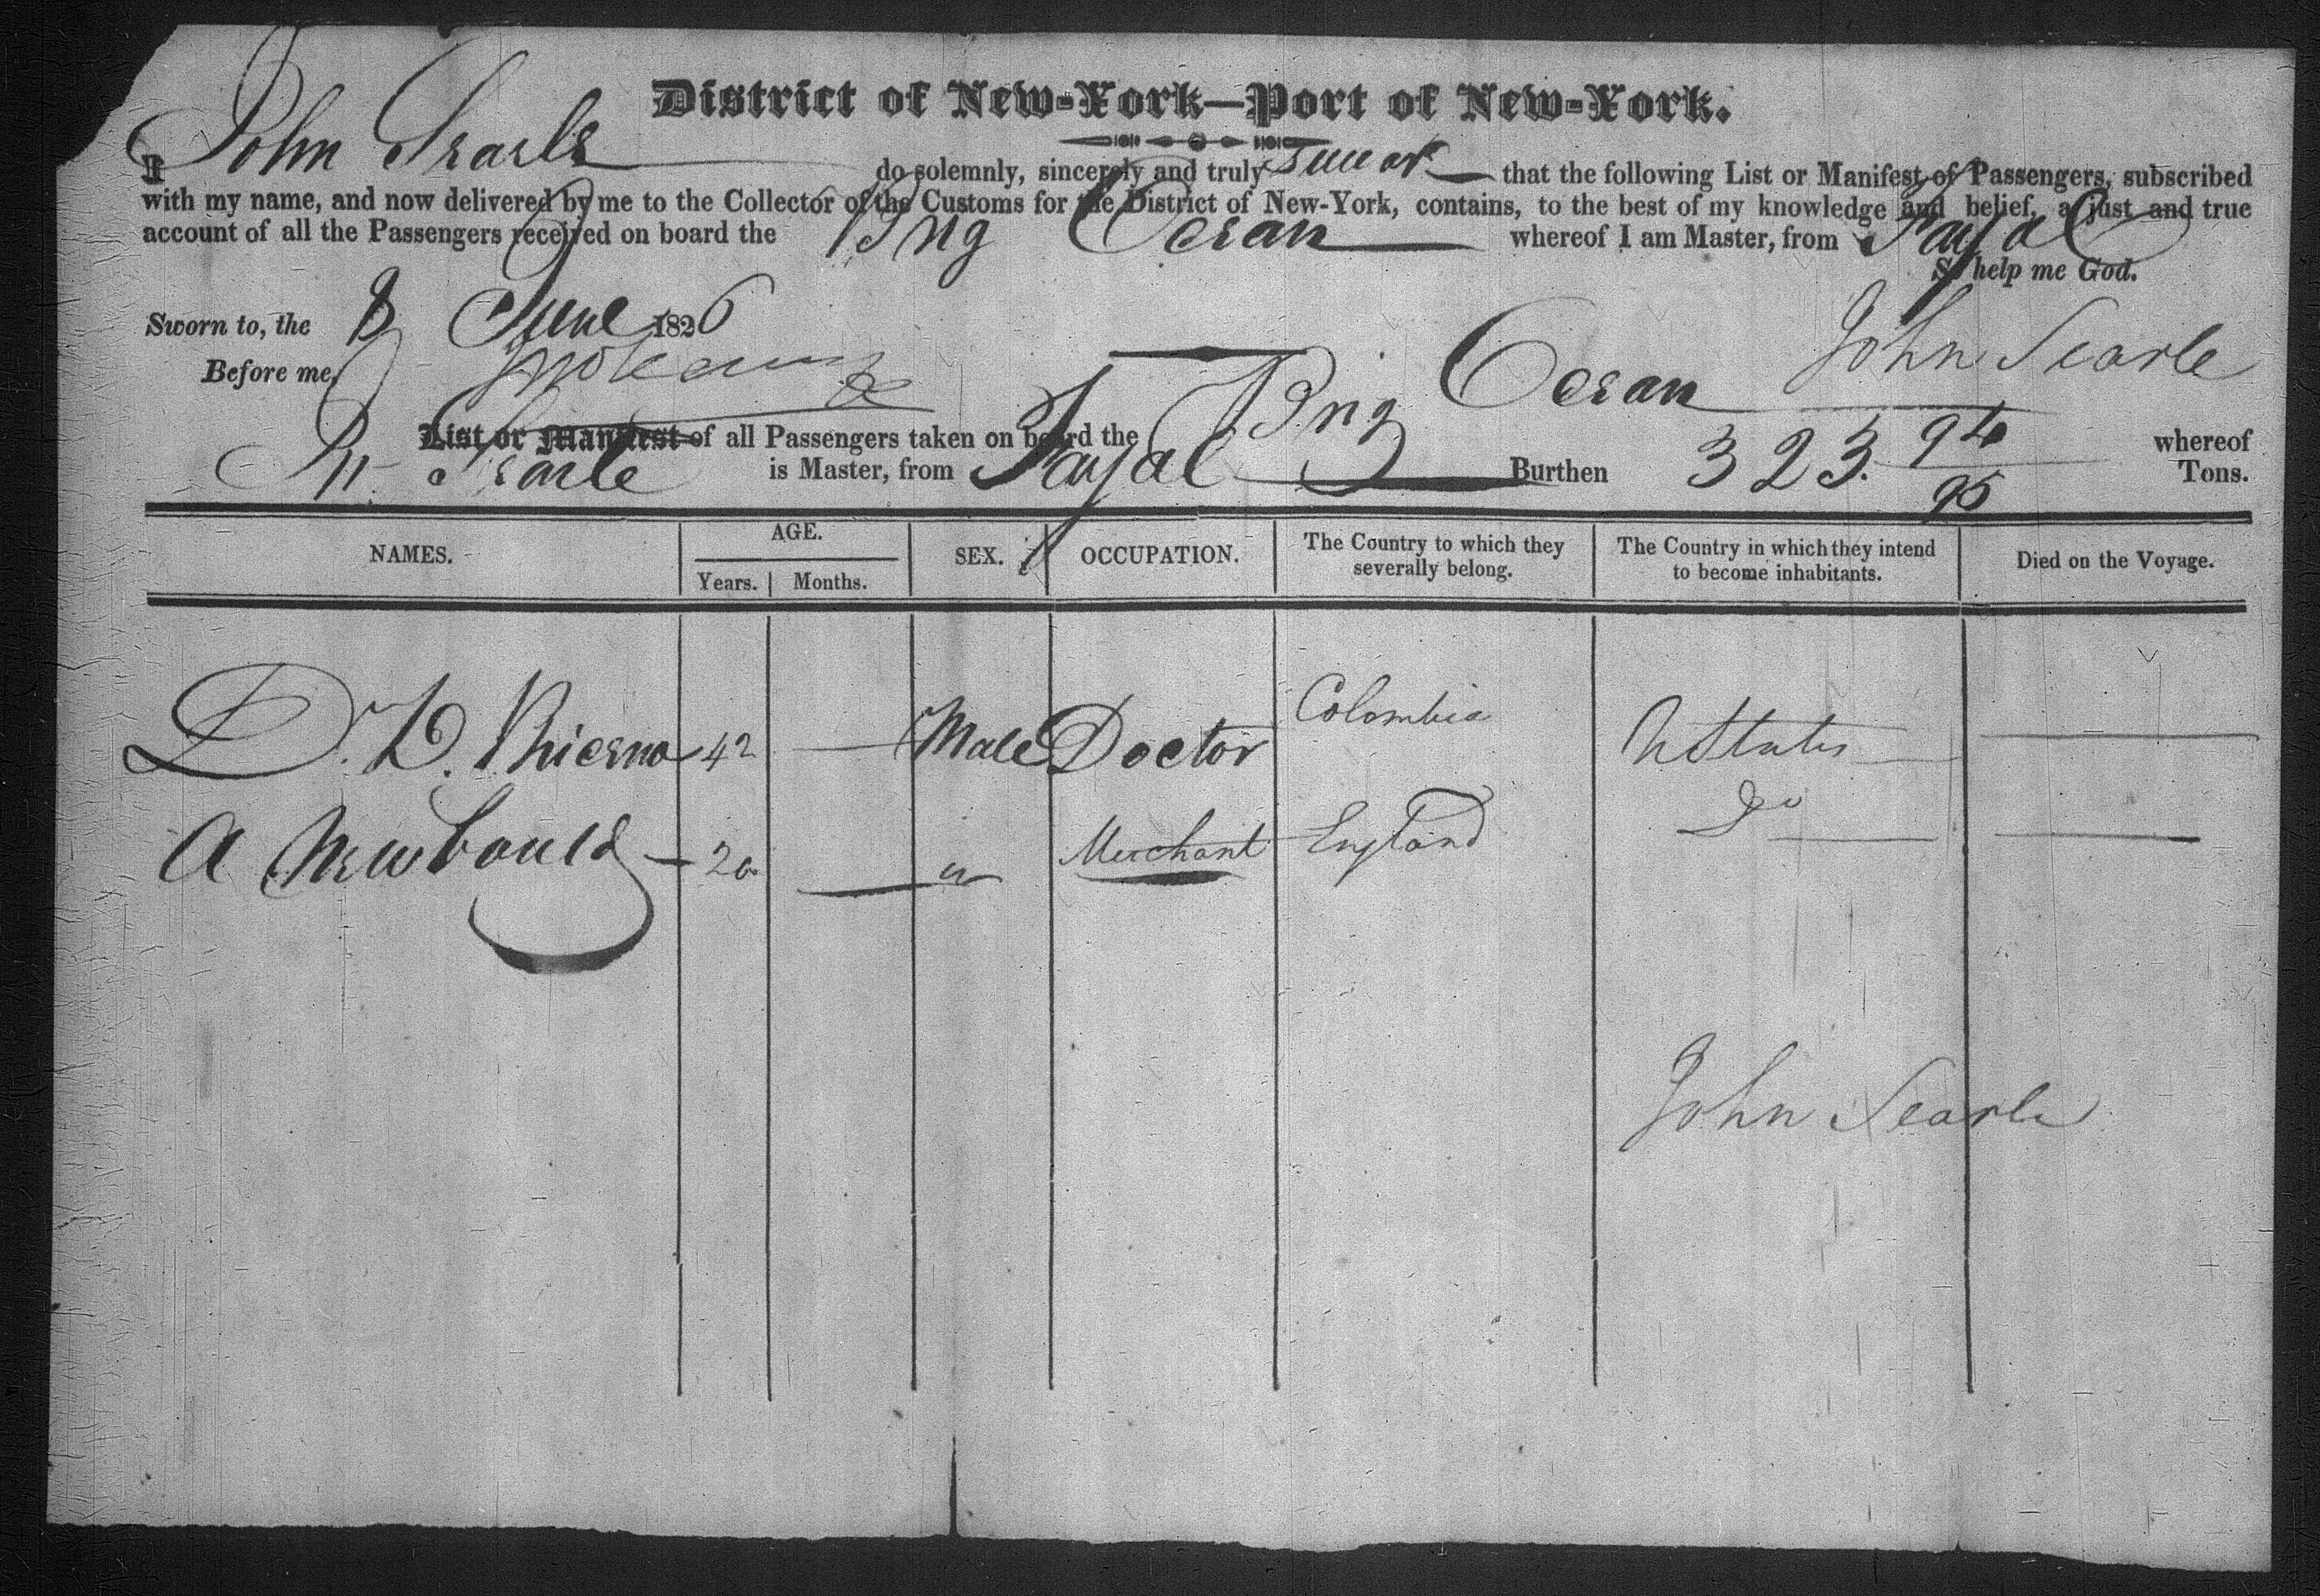 District of New-York—Port of New-York.
I John Searle do solemnly, sincerely and truly swear that the following List or Manifest of Passengers, subscribed
with my name, and now delivered by me to the Collector of the Customs for the District of New-York, contains, to the best of my knowledge and belief, a just and true
account of all the Passengers received on board the Brig Ocean whereof I am Master, from Fayal
So help me God.
Sworn to, the 8 June 1826
John Searle
Before me,
List or Manifest of all Passengers taken on board the Brig Ocean whereof
Searle is Master, from Fayal Burthen 323. 94/95 Tons.
NAMES. AGE. SEX. OCCUPATION. The Country to which they severally belong. The Country in which they intend to become inhabitants. Died on the Voyage.
Years. Months.
D. D. 42 — Male Doctor Colombia U States —
A Newbould — 20 — " Merchant England Do —
John Searle